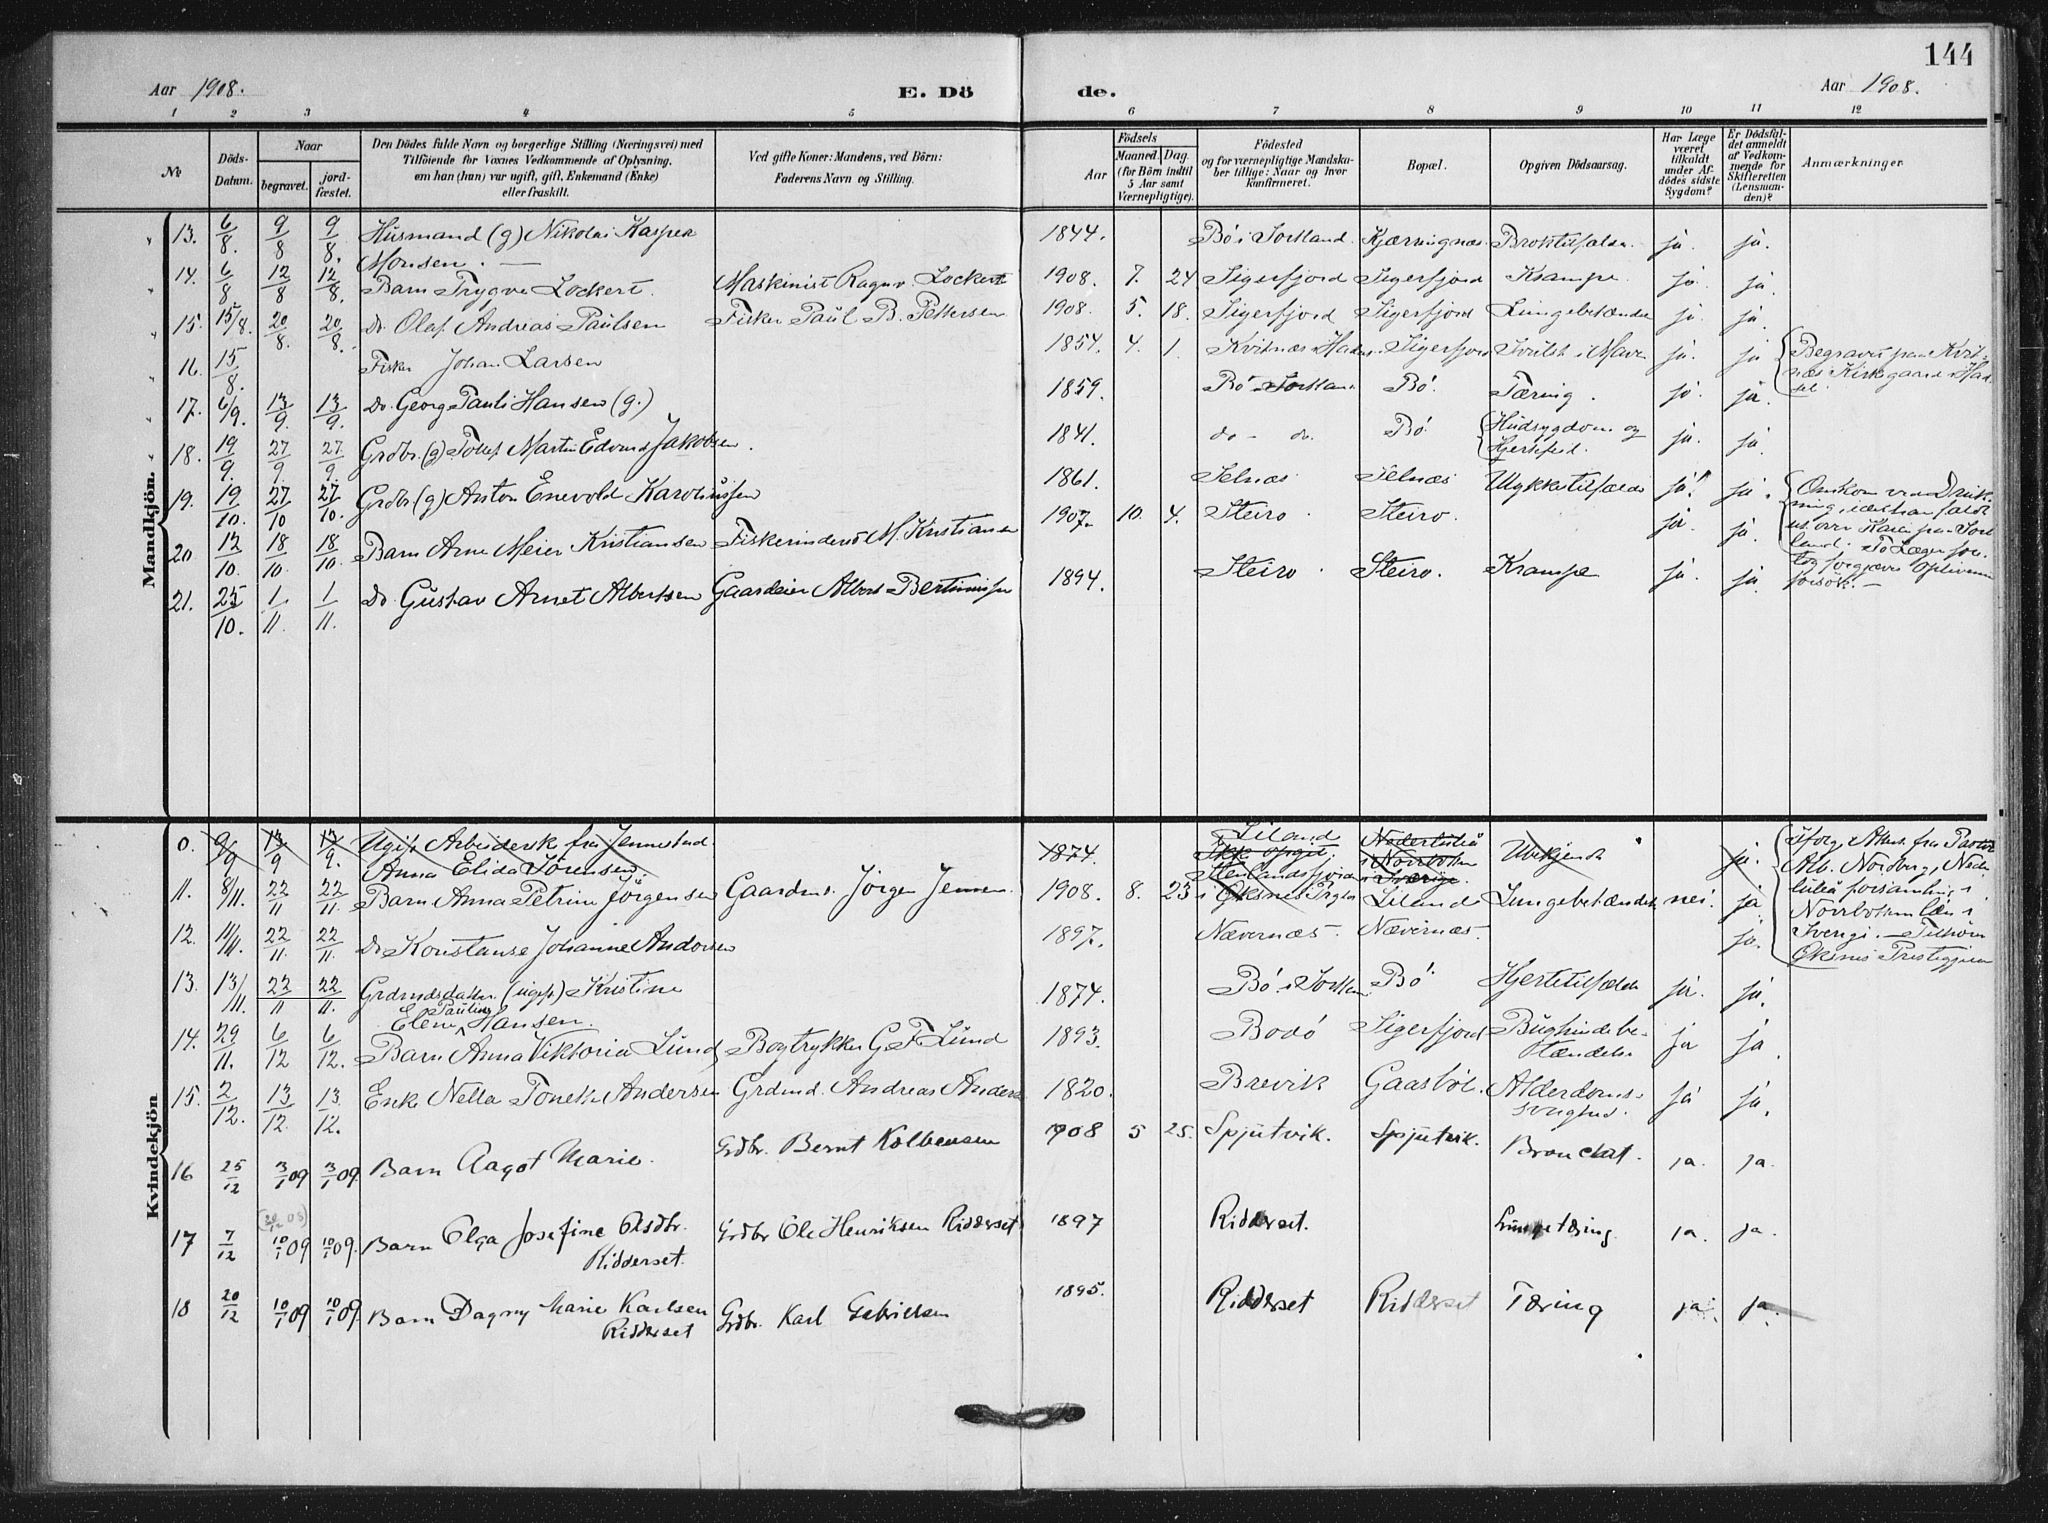 144
Aar 1908. E. Dö de. Aar 1908.
1 2 3 4 5 6 7 8 9 10 11 12
No
Döds-Datum.
Naar
begravet.
jord-fæstet.
Den Dödes fulde Navn og borgerlige Stilling (Næringsvei) med
Tilföiende for Voxnes Vedkommende af Oplysning,
om han (hun) var ugift, gift, Enkemand (Enke)
eller fraskilt.
Ved gifte Koner: Mandens, ved Börn:
Faderens Navn og Stilling.
Födsels
Aar
Maaned. Dag.
(for Börn indtil
5 Aar samt
Værnepligtige).
Födested
og for værnepligtige Mandska-
ber tillige: Naar og hvor
konfirmeret.
Bopæl.
Opgiven Dödsaarsag.
Har Læge
været
tilkaldt
under Af-
dödes sidste
Sygdom?
Er Dödsfal-
det anmeldt
af Vedkom-
mende for
Skifteretten
(Lensman-
den)?
Anmærkninger
Mandkjön.
13. 6/8. 9/8 9/8. Husmand (g) Nikolai Kasper 1844. Bö i Sortland. Kjærringnæs ja. ja.
Monsen.
14. 6/8 12/8 12/8. Barn Trygve Lockert. Maskinist Ragnv. Lockert 1908. 7. 24 Sigerfjord Sigerfjord Krampe ja. ja.
15. 15/8. 20/8. 20/8. Do. Olaf Andreas Paulsen Fisker Paul B. Pettersen 1908. 5. 18. Sigerfjord Sigerfjord Lungebetændelse ja. ja.
16. 15/8. Fisker Johan Larsen 1854. 4. 1. Kvitnæs i Hadsel. Sigerfjord Svulst i Maven ja. ja
Begravet paa Kvit-
næs Kirkegaard i Had-
sel
17. 6/9. 13/9. 13/9. Do. Georg Pauli Hansen (g.) 1859. Bö i Sortland Bö. Tæring. ja. ja.
18. 19/9. 27/9. 27/9. Grdbr. (g) Tollef Martin Edvard Jakobsen. 1841. do - do. Bö. Hudsygdom og
Hjertefeil. ja. ja.
19. 19/10. 27/10 27/10. Grdbr (g) Anton Enevold Karoliussen 1861. Selnæs. Selnæs Ulykkestilfælde ja! ja.
Omkom ved Druk-
ning, idet han faldt
ud over Kaien paa Sort-
land. To Læger fore-
tog forgjæves Oplivnings-
forsök. -
20 12/10. 18/10. 18/10. Barn Arne Meier Kristiansen M. Kristiansen 1907. 10. 4. Steiro. Steiro. ja. ja.
21. 25/10. 1/11. 1/11. Do. Gustav Arnet Albertsen Gaardeier Albert Bertinussen 1894. Steiro. Steiro. Krampe ja. ja.
Kvindekjön
0. 9/9 13/9 13/9. Ugift Arbeidersk fra Jennestad 1874. Ikke opgit. Nederluleå
i Norrbotten
i Sverige. Ubekjendt ja.
Anna Elida Sörensen.
Ifølg. Attest fra Pastor
Alb. Nordberg, Neder-
luleå forsamling i
Norrbottens län i
Sverige. - Tilhörer
Øksnes Prestegjeld
11. 8/11. 22/11 22/11. Barn Anna Petrine Jörgensen Gaardm. Jörgen Jensen. 1908. 8. 23 Liland Lungebetændelse nei. ja
12. 11/11. 22/11. 22/11. Do Konstanse Johanne Andersen 1897. Nævernæs. Nævernæs. ja.
13. 13/11. 22/11 22/11. Grdmdsdatter (ugift) Kristine 1874. Bö i Sortland Bö Hjertetilfælde ja. ja.
Elene Pauline Hansen.
14. 29/11. 6/12 6/12. Barn Anna Viktoria Lund Bogtrykker G. F. Lund 1893. Bodö Sigerfjord Bughindebe-
tændelse ja ja.
15. 2/12. 13/12. 13/12. Enke Nella Andersen Grdmd. Andreas Anders. 1820. Brevik Gaasböl. Alderdoms-
svaghed. ja ja.
16 25/12 3/1 09 3/1 09. Barn Aagot Marie. Grdbr. Bernt Kolbensen 1908 5 25. Spjutvik. Spjutvik. Bronchit. ja. ja.
17 7/12 (20/12 08) 10/1 09 10/1 09. Barn Olga Josefine Olsdtr. Grdbr Ole Henriksen Ridderset 1897 Ridderset. Lungetæring. ja. ja.
Ridderset.
18 20/12 10/1 09 10/1 09. Barn Dagny Marie Karlsen Grdbr. Karl Gabrielsen 1895. Ridderset Ridderset Tæring ja. ja.
Ridderset